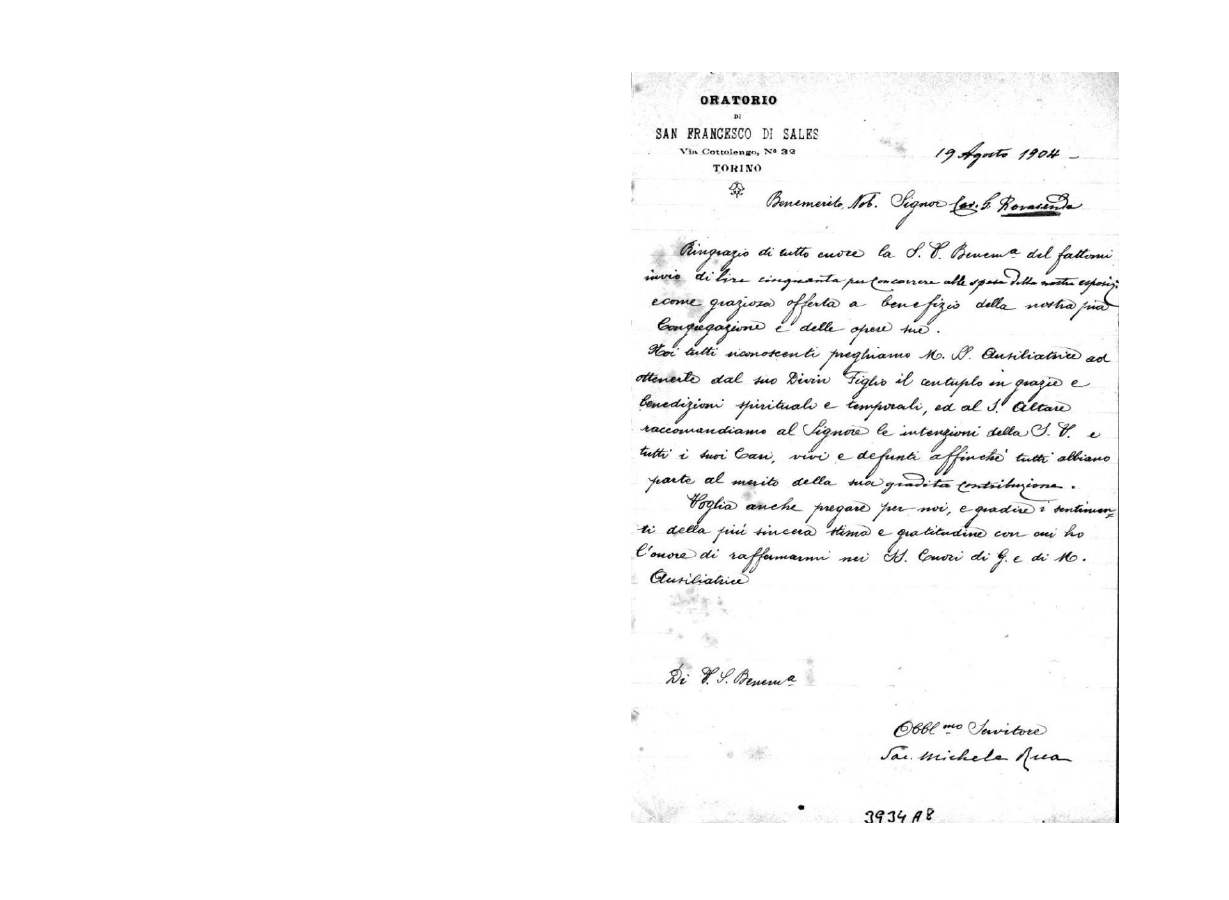 ORATORIO
DI
SAN FRANCESCO DI SALES
Via Cottolengo, Nº 32
TORINO
19 Agosto 1904 -
Benemerito Nob. Signor Cav. G. Rovasenda
Ringrazio di tutto cuore la S. V. Benemª del fattomi
invio di lire cinquanta per concorrere alle spese della nostra esposiz.
e come graziosa offerta a benefizio della nostra pia
Congregazione e delle opere sue.
Noi tutti riconoscenti preghiamo M. SS. Ausiliatrice ad
ottenerle dal suo Divin Figlio il centuplo in grazie e
benedizioni spirituali e temporali, ed al S. Altare
raccomandiamo al Signore le intenzioni della S. V. e
tutti i suoi Cari, vivi e defunti affinchè tutti abbiano
parte al merito della sua gradita contribuzione.
Voglia anche pregare per noi, e gradire i sentimen-
ti della più sincera stima e gratitudine con cui ho
l'onore di raffermarmi nei SS. Cuori di G. e di M.
Ausiliatrice
Di V. S. Benemª
Obblmo Servitore
Sac. Michele Rua
3934 A8